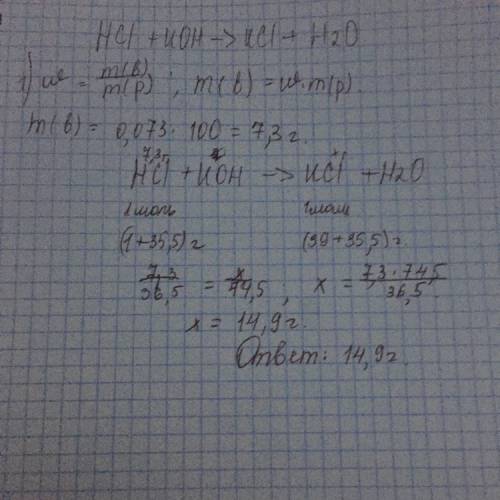 HCl + KOH -> KCl + H2O
1) w = m(в)/m(р) ; m(в) = w·m(р).
m(в) = 0,073 · 100 = 7,3 г.
7,3г x
HCl + KOH -> KCl + H2O
1 моль 1 моль
(1+35,5) г (39+35,5) г.
7,3/36,5 = x/74,5 ; x = 7,3·74,5/36,5
x = 14,9 г.
Ответ: 14,9 г.